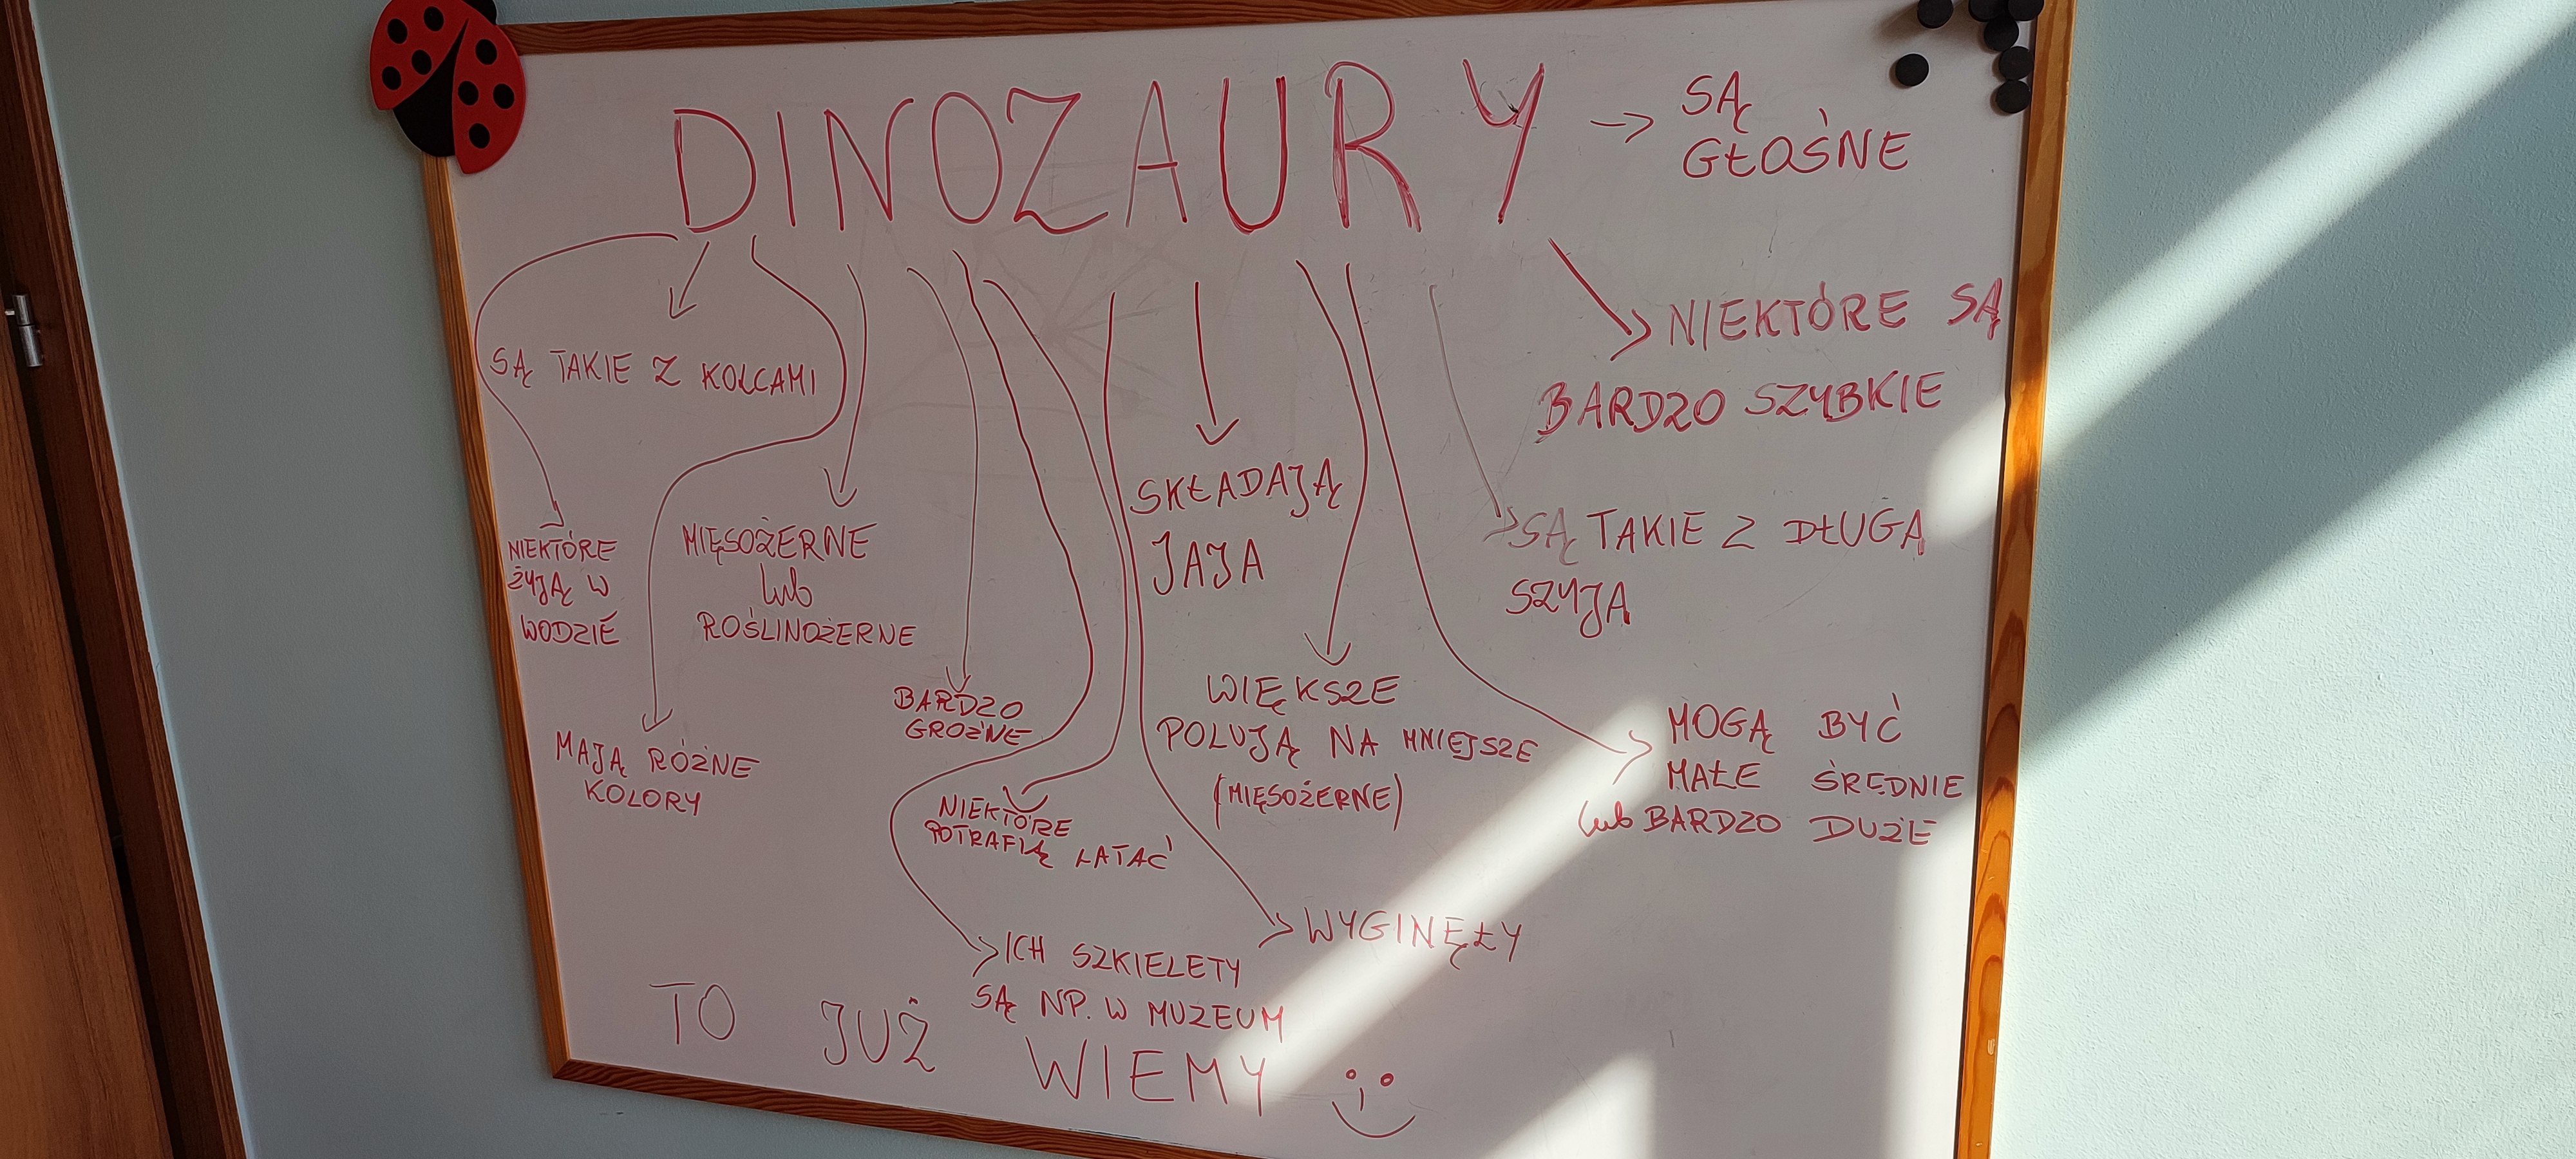 DINOZAURY
SĄ
GŁOŚNE
NIEKTÓRE SĄ
BARDZO SZYBKIE
SĄ TAKIE Z KOLCAMI
SĄ TAKIE Z DŁUGĄ
SZYJĄ
SKŁADAJĄ
JAJA
NIEKTÓRE
ŻYJĄ W
WODZIE
MIĘSOŻERNE
lub
ROŚLINOŻERNE
BARDZO
GROŹNE
WIĘKSZE
POLUJĄ NA MNIEJSZE
(MIĘSOŻERNE)
MOGĄ BYĆ
MAŁE ŚREDNIE
lub BARDZO DUŻE
MAJĄ RÓŻNE
KOLORY
NIEKTÓRE
POTRAFIĄ LATAĆ
WYGINĘŁY
ICH SZKIELETY
SĄ NP. W MUZEUM
TO JUŻ WIEMY